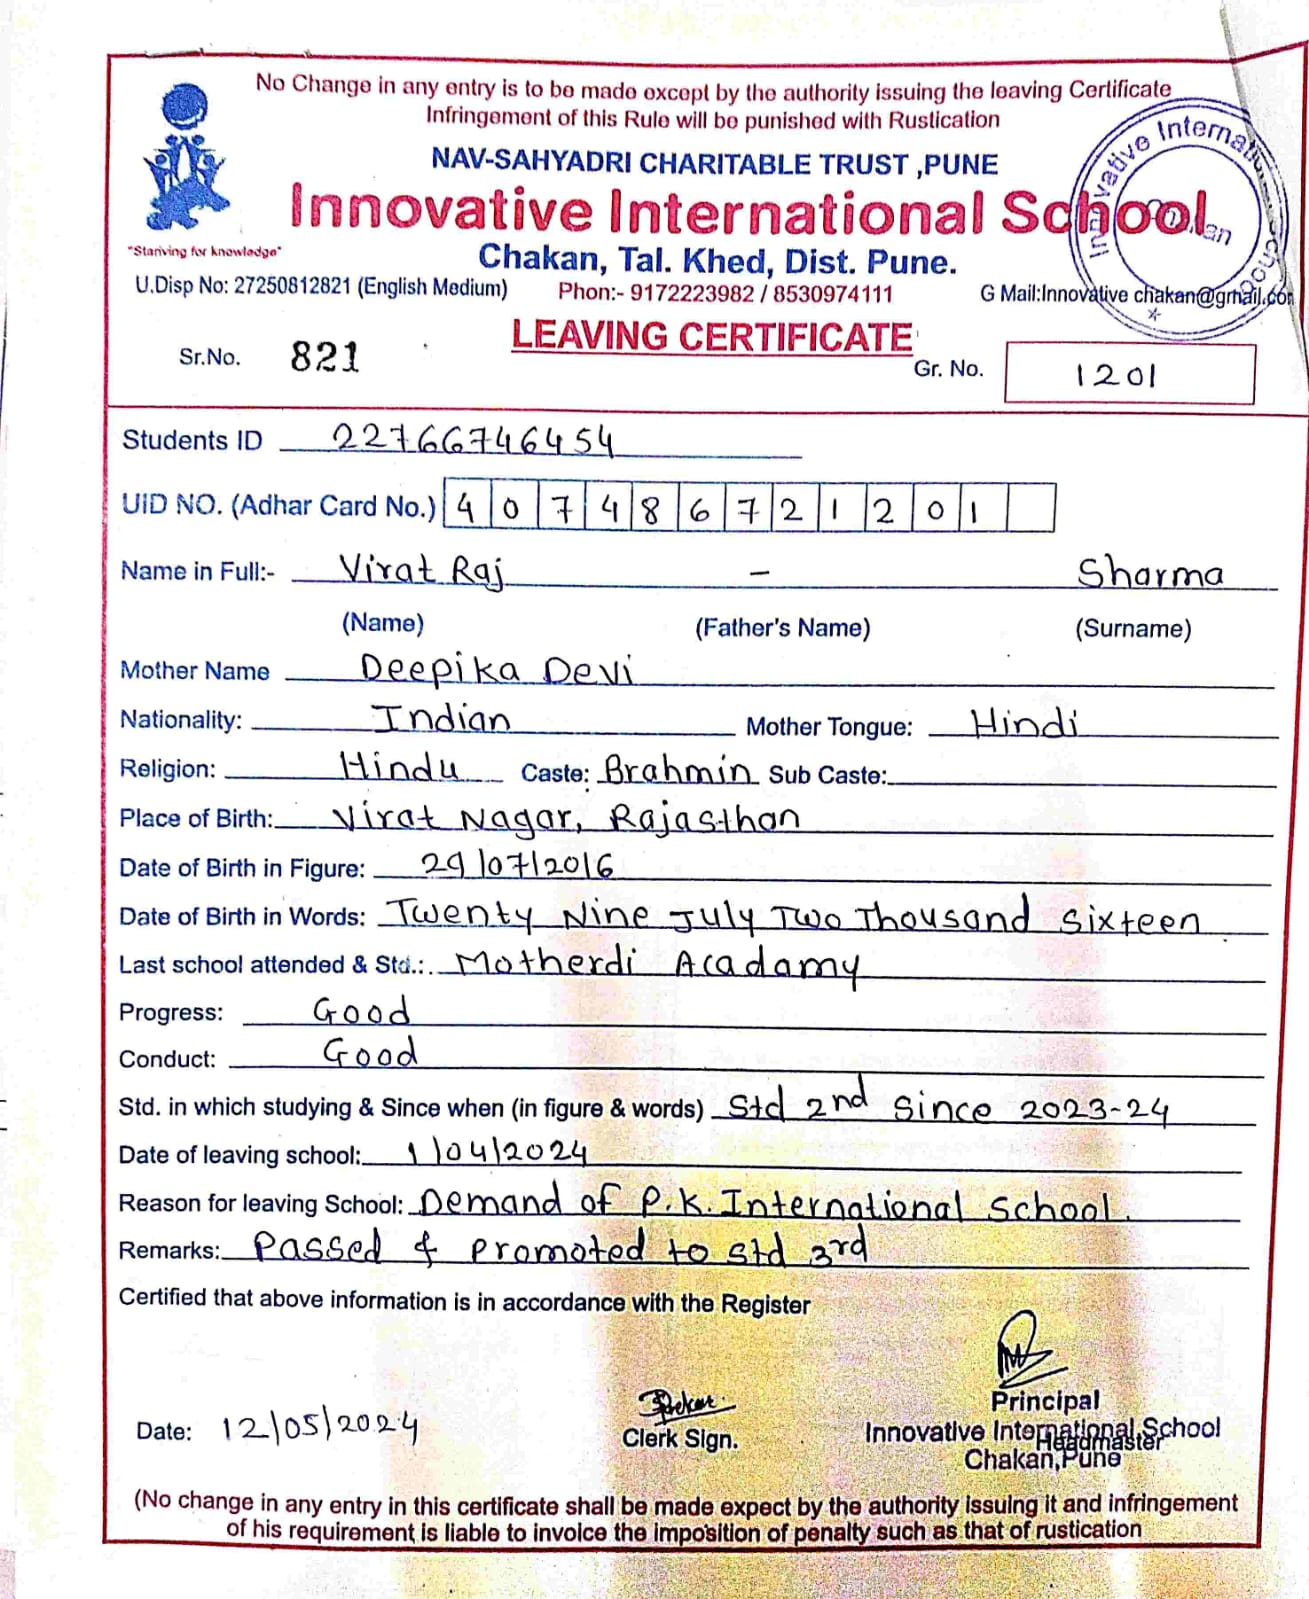 No Change in any entry is to be made except by the authority issuing the leaving Certificate
Infringement of this Rule will be punished with Rustication
NAV-SAHYADRI CHARITABLE TRUST ,PUNE
Innovative International School
"Stariving for knowledge"
Chakan, Tal. Khed, Dist. Pune.
U.Disp No: 27250812821 (English Medium) Phon:- 9172223982 / 8530974111 G Mail:Innovative chakan@gmail.com
Innovative International School Chakan
LEAVING CERTIFICATE
Sr.No. 821 Gr. No. 1201
Students ID 22766746454
UID NO. (Adhar Card No.) 4 0 7 4 8 6 7 2 1 2 0 1
Name in Full:- Virat Raj - Sharma
(Name) (Father's Name) (Surname)
Mother Name Deepika Devi
Nationality: Indian Mother Tongue: Hindi
Religion: Hindu Caste: Brahmin Sub Caste:
Place of Birth: Virat Nagar, Rajasthan
Date of Birth in Figure: 29/07/2016
Date of Birth in Words: Twenty Nine July Two Thousand Sixteen
Last school attended & Std.: Motherdi Acadamy
Progress: Good
Conduct: Good
Std. in which studying & Since when (in figure & words) Std 2nd Since 2023-24
Date of leaving school: 1/04/2024
Reason for leaving School: Demand of P.K. International School.
Remarks: Passed & Promoted to Std 3rd
Certified that above information is in accordance with the Register
Date: 12/05/2024
Clerk Sign.
Principal
Innovative International School
Headmaster
Chakan,Pune
(No change in any entry in this certificate shall be made expect by the authority issuing it and infringement
of his requirement is liable to invoice the imposition of penalty such as that of rustication